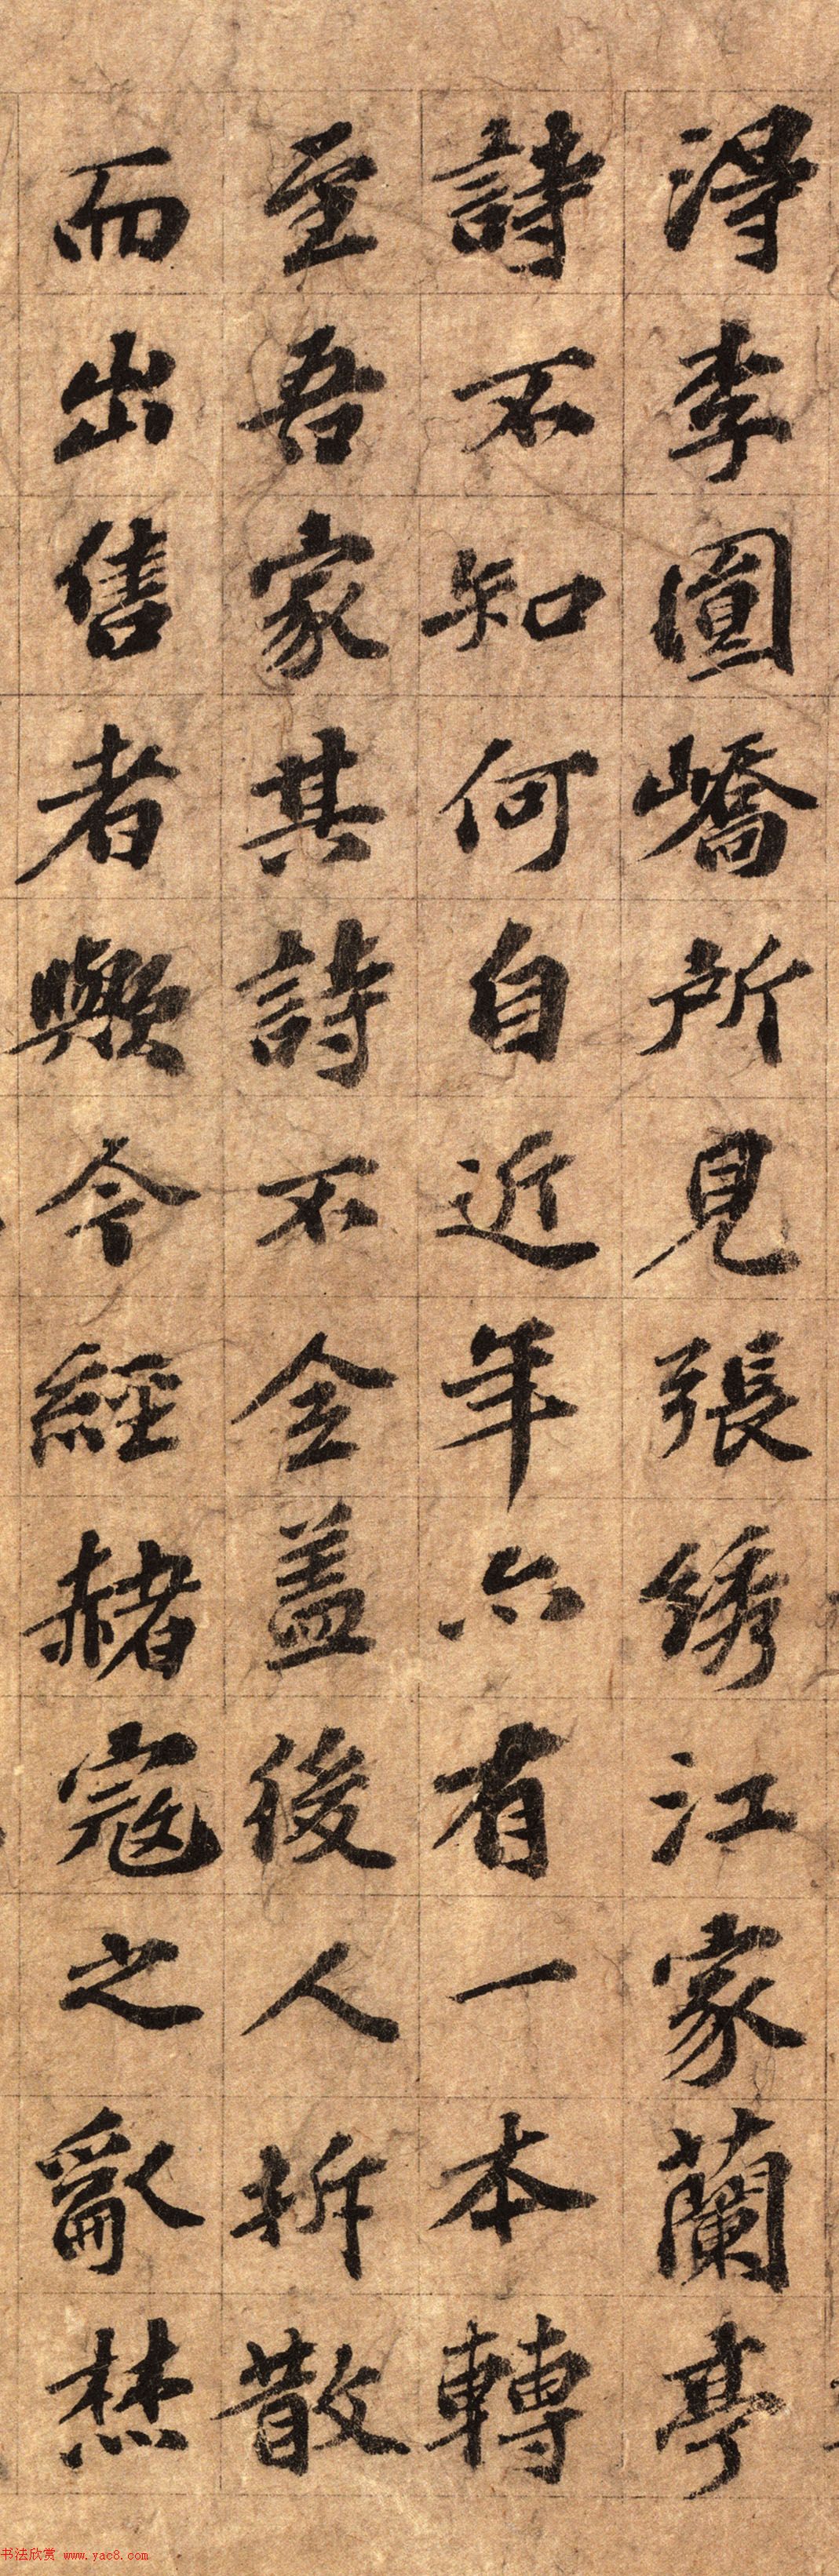 淂李圖嶠所見張綉江家蘭亭
詩不知何自近年亦有一本轉
至吾家其詩不全盖後人拆散
而出售者歟今經赭寇之亂焚
书法欣赏 www.yac8.com